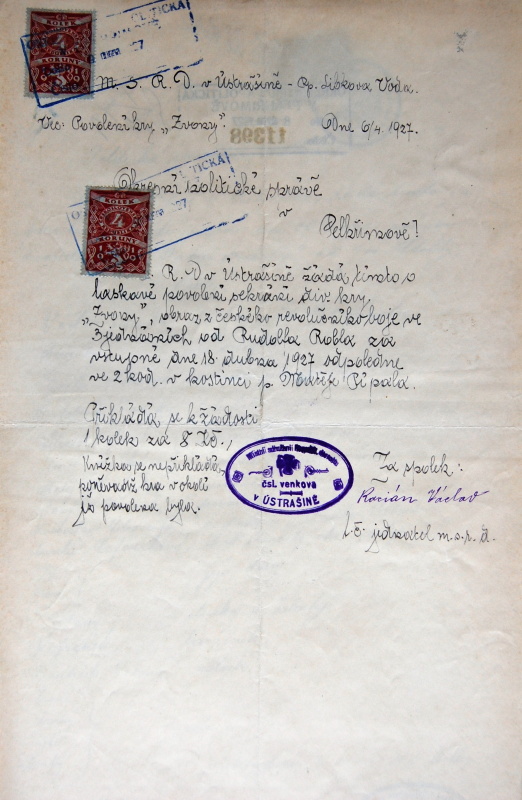 M. S. R. D. v Ústrašíně - p. Libkova Voda.
Věc: Povolení hry „Zvony”
Dne 6/4. 1927.
11398
Okresní politické správě
v
Pelhřimově!
R. D v Ústrašíně žádá tímto o
laskavé povolení sehrání div. hry
„Zvony”, obraz z českého revolučního boje ve
3 jednáních od Rudolfa Rubla za
vstupné dne 18. dubna 1927 odpoledne
ve 2 hod. v hostinci p. Matěje Pípala.
Přikládá se k žádosti
1 kolek za 8 Kč.,
Knížka se nepřikládá,
poněvadž hra v okolí
již povolena byla.
Místní sdružení Republ. dorostu
čsl. venkova
v ÚSTRAŠINĚ
Za spolek:
Kacián Václav
t. č. jednatel m. s. r. d.
KOLEK
4
KORUNY
KOLEK
4
KORUNY